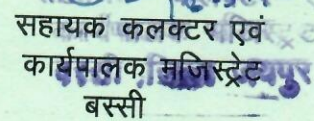 सहायक कलक्टर एवं
कार्यपालक मजिस्ट्रेट
बस्सी